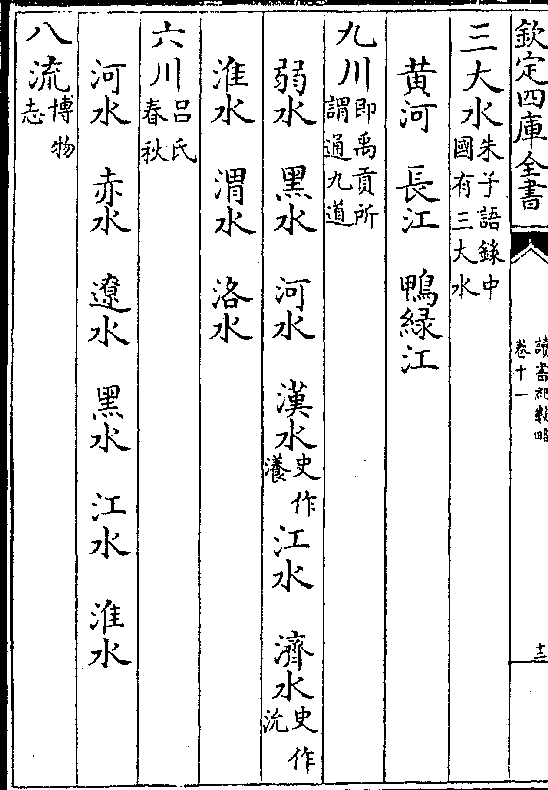 欽定四庫全書
讀書紀數略
卷十一
十三
三大水朱子語錄中國有三大水
黄河 長江 鴨緑江
九川即禹貢所謂通九道
弱水 黑水 河水 漢水史作瀁 江水 濟水史作沇
淮水 渭水 洛水
六川吕氏春秋
河水 赤水 遼水 黑水 江水 淮水
八流博物志